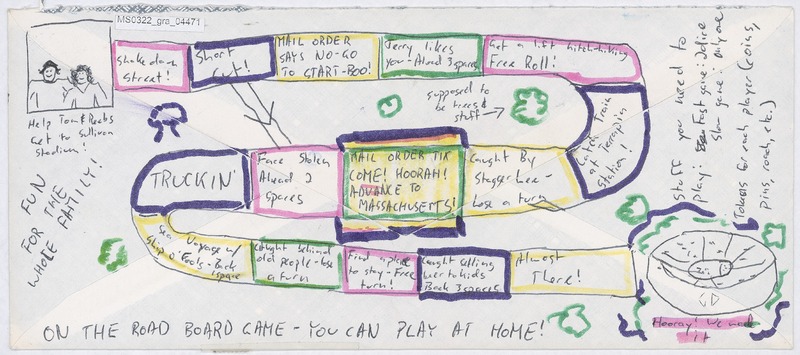 MS0322_gra_04471
Shakedown
Street!
Short
Cut!
MAIL ORDER
SAYS NO-GO
TO START-BOO!
Jerry likes
you - Ahead 3 spaces
Get a lift hitch-hiking
Free Roll!
Catch Train
at Terrapin
Station!
supposed to
be trees &
stuff →
Help Tom & Reebs
Get to Sullivan
Stadium!
FUN
FOR THE
WHOLE FAMILY!
TRUCKIN'
Face Stolen
Ahead 2
spaces
MAIL ORDER TIX
COME! HOORAH!
ADVANCE TO
MASSACHUSETTS!
Caught By
Stagger Lee -
Lose a turn
Sea
Voyage w/
Ship o' Fools - Back
1 space
Caught behind
old people - lose
a turn
Find a place
to stay - Free
turn!
Caught selling
Back 3 spaces
Almost
There!
Stuff you need to
play: Fast game: 2 dice
slow game: only one
Tokens for each player (coins,
pins, roach, etc.)
Hooray! We made
it
ON THE ROAD BOARD GAME - YOU CAN PLAY AT HOME!